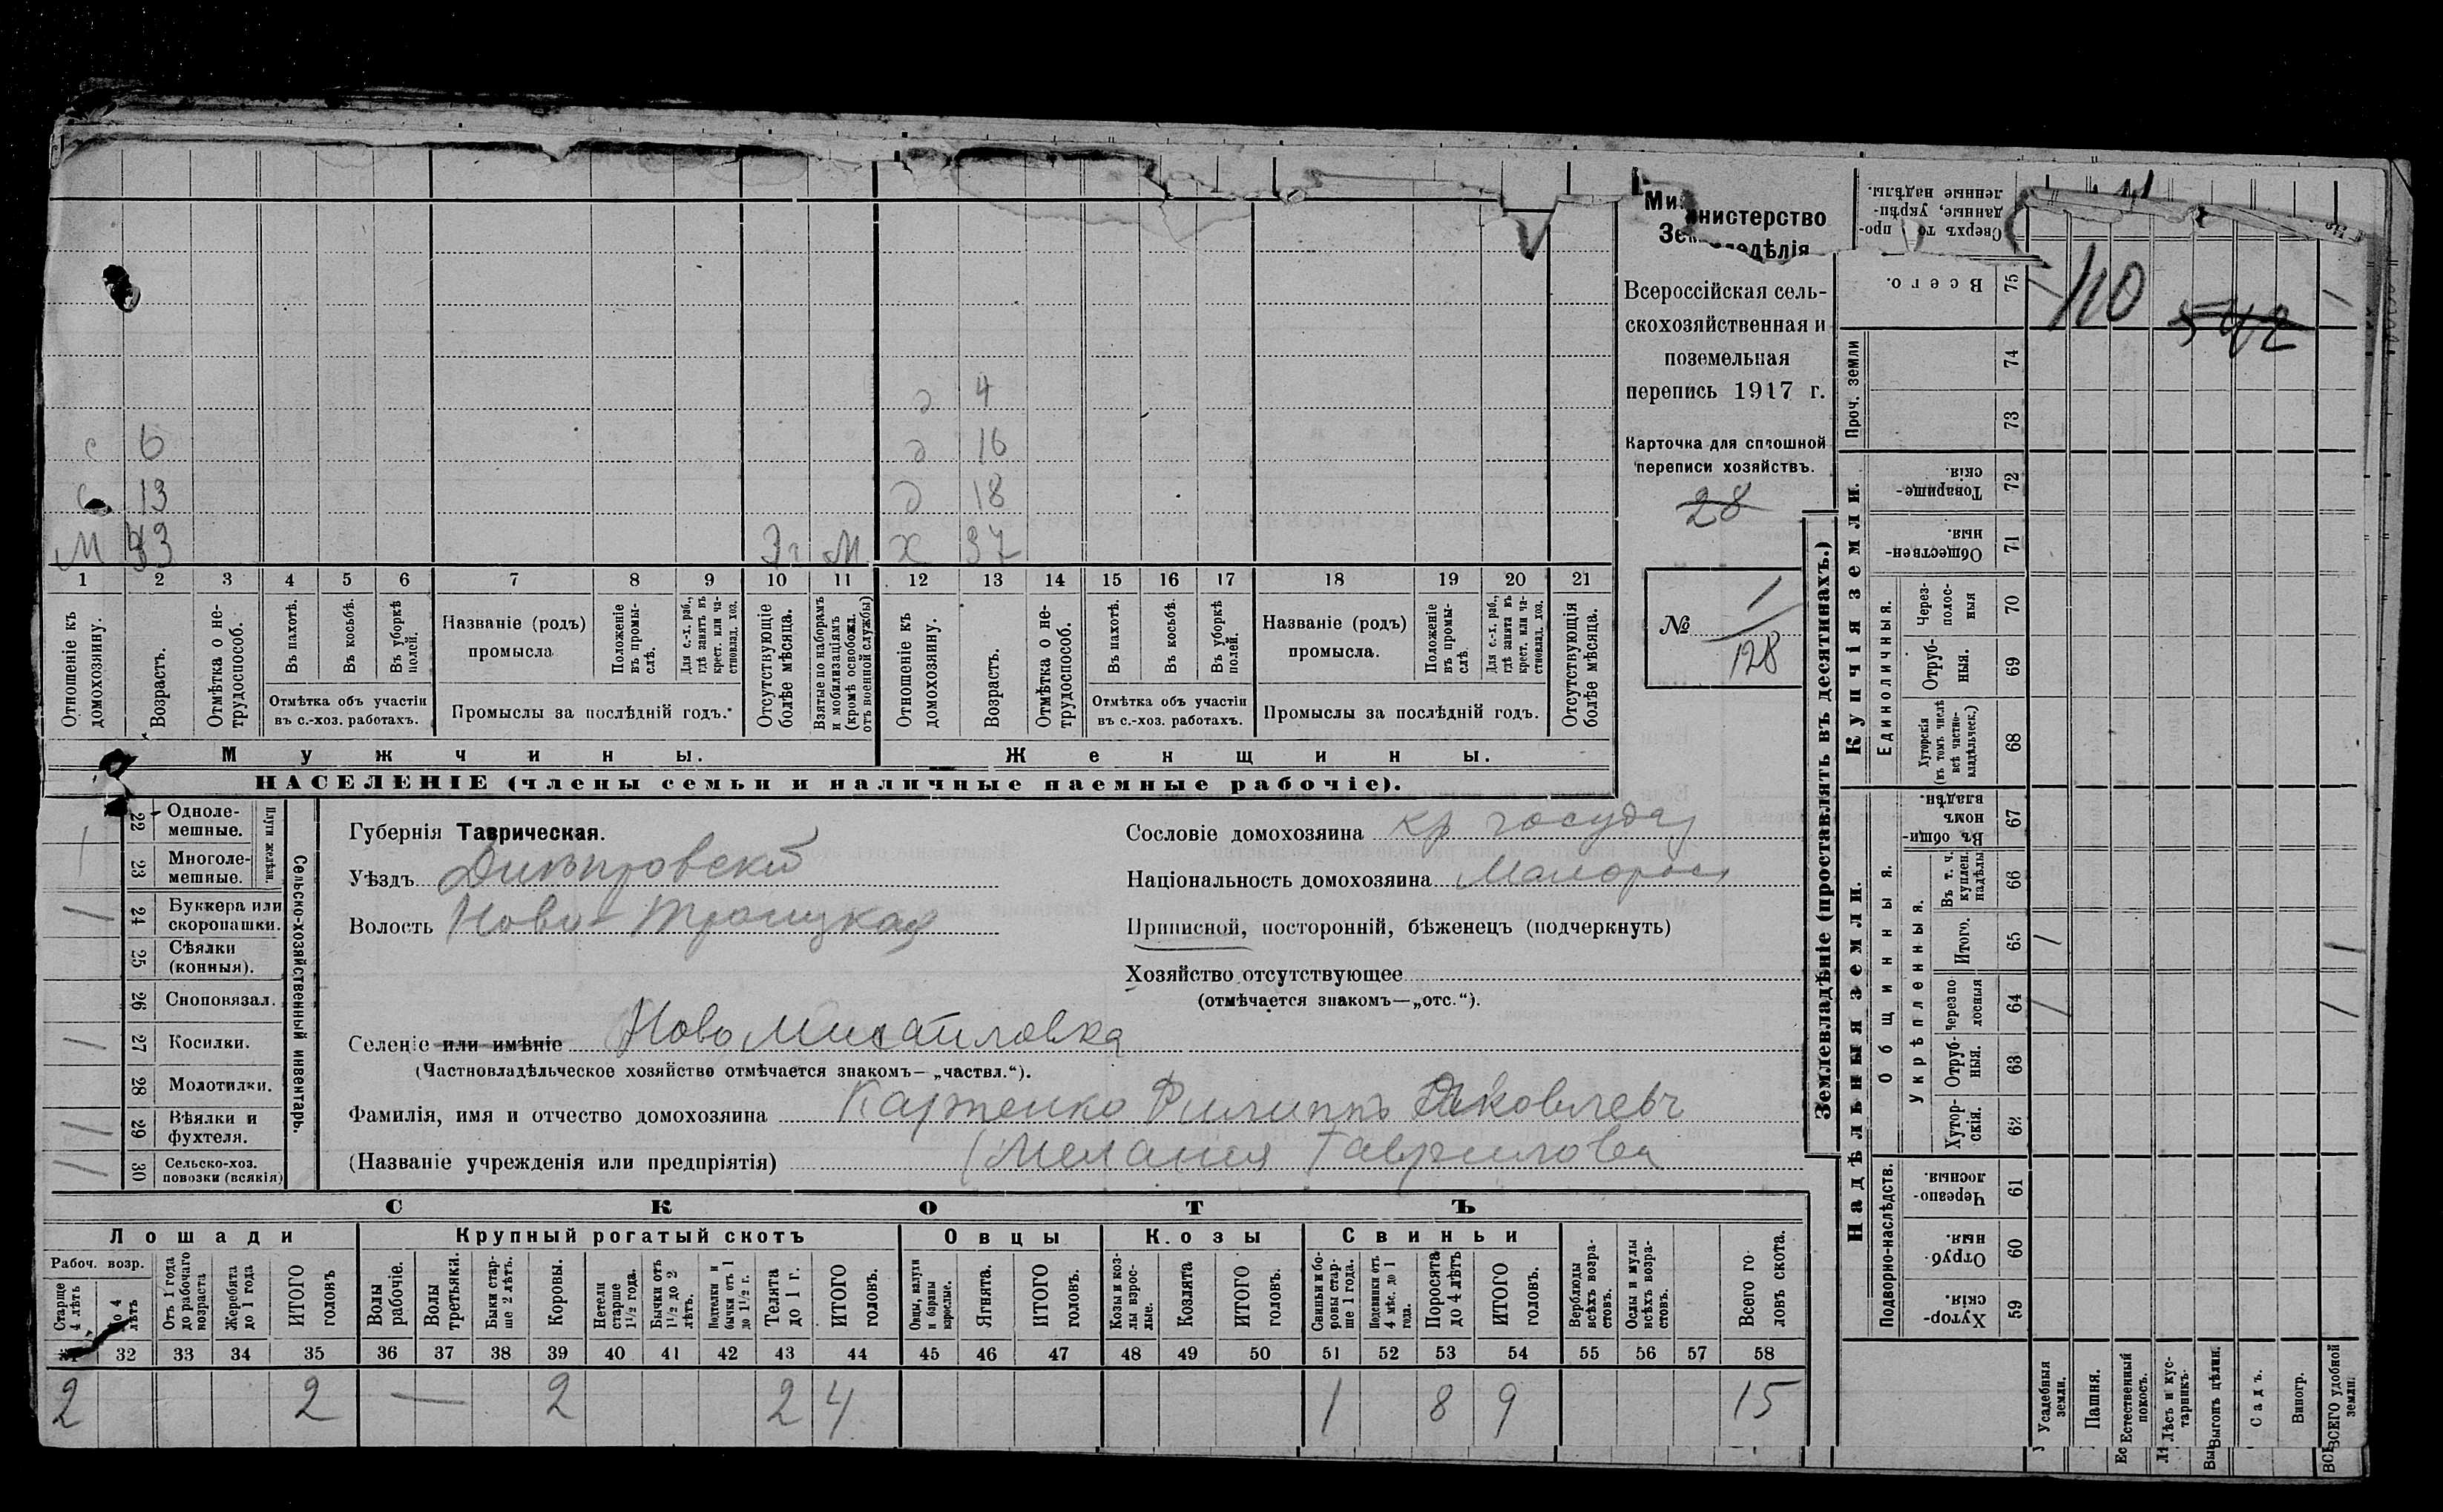 д 4
с 6 д 16
с 13 д 18
М 43 Эг М ж 37
1 2 3 4 5 6 7 8 9 10 11 12 13 14 15 16 17 18 19 20 21
Отношеніе къ домохозяину.
Возрастъ.
Отмѣтка о не-трудоспособ.
Въ пахотѣ.
Въ косьбѣ.
Въ уборкѣ полей.
Отмѣтка объ участіи
въ с.-хоз. работахъ.
Названіе (родъ)
промысла
Положеніе въ промы-слѣ.
Для с.-х. раб., гдѣ занятъ въ крест. или ча-стновлад. хоз.
Промыслы за послѣдній годъ.
Отсутствующіе болѣе мѣсяца.
Взятые по наборамъ и мобилизаціямъ (кромѣ освобожд. отъ военной службы)
Отношеніе къ домохозяину.
Возрастъ.
Отмѣтка о не-трудоспособ.
Въ пахотѣ.
Въ косьбѣ.
Въ уборкѣ полей.
Отмѣтка объ участіи
въ с.-хоз. работахъ.
Названіе (родъ)
промысла.
Положеніе въ промы-слѣ.
Для с.-х. раб., гдѣ занята въ крест. или ча-стновлад. хоз.
Промыслы за послѣдній годъ.
Отсутствующія болѣе мѣсяца.
Мужчины.
Женщины.
НАСЕЛЕНІЕ (члены семьи и наличные наемные рабочіе).
Министерство
Земледѣлія
Всероссійская сель-
скохозяйственная и
поземельная
перепись 1917 г.
Карточка для сплошной
переписи хозяйствъ.
28
№ 1/128
22 Одноле-мешные.
23 Многоле-мешные.
Плуги желѣзн.
24 Буккера или скоропашки.
25 Сѣялки (конныя).
26 Сноповязал.
27 Косилки.
28 Молотилки.
29 Вѣялки и фухтеля.
30 Сельско-хоз. повозки (всякія)
Сельско-хозяйственный инвентарь.
Губернія Таврическая.
Уѣздъ Днѣпровскій
Волость Ново-Троицкая
Сословіе домохозяина кр государ
Національность домохозяина Малоросъ
Приписной, посторонній, бѣженецъ (подчеркнуть)
Хозяйство отсутствующее
(отмѣчается знакомъ—„отс.“).
Селеніе или имѣніе Ново Михайловка
(Частновладѣльческое хозяйство отмѣчается знакомъ— „частвл.“).
Фамилія, имя и отчество домохозяина Карпенко Филиппъ Яковлевъ
(Названіе учрежденія или предпріятія) (Меланія Гаврилова
СКОТЪ
Лошади
Крупный рогатый скотъ
Овцы
Козы
Свиньи
Рабоч. возр.
Старше 4 лѣтъ
До 4 лѣтъ
Отъ 1 года до рабочаго возраста
Жеребята до 1 года
ИТОГО головъ
Волы рабочіе.
Волы третьяки.
Быки стар-ше 2 лѣтъ.
Коровы.
Нетели старше 1½ года.
Бычки отъ 1½ до 2 лѣтъ.
Подтелки и бычки отъ 1 до 1½ г.
Телята до 1 г.
ИТОГО головъ.
Овцы, валухи и бараны взрослые.
Ягнята.
ИТОГО головъ.
Козы и коз-лы взрос-лые.
Козлята
ИТОГО головъ.
Свиньи и бо-ровы стар-ше 1 года.
Подсвинки отъ 4 мѣс. до 1 года.
Поросята до 4 лѣтъ
ИТОГО головъ.
Верблюды всѣхъ возра-стовъ.
Ослы и мулы всѣхъ возра-стовъ.
Всего го-ловъ скота.
31 32 33 34 35 36 37 38 39 40 41 42 43 44 45 46 47 48 49 50 51 52 53 54 55 56 57 58
2 2 — 2 2 4 1 8 9 15
Землевладѣніе (проставлять въ десятинахъ.)
Сверхъ то про-данные, укрѣп-ленные надѣлы.
Всего. 75
110
542
Проч. земли
74
73
Купчія земли.
Товарище-скія. 72
Обществен-ныя. 71
Единоличныя.
Через-полос-ныя 70
Отруб-ныя. 69
Хуторскія (въ томъ числѣ всѣ частно-владѣльческ.) 68
Надѣльныя земли.
Общинныя.
Въ общи-номъ владѣн. 67
Укрѣпленныя.
Въ т. ч. куплен. надѣлы 66
Итого. 65
Черезпо лосныя 64
Отруб-ныя. 63
Хутор-скія. 62
Подворно-наслѣдств.
Черезпо-лосныя. 61
Отруб-ныя. 60
Хутор-скія. 59
Усадебныя земли.
Пашня.
Естественный покосъ.
Лѣсъ и кус-тарникъ.
Выгонъ цѣлин.
Садъ.
Виногр.
ВСЕГО удобной земли.